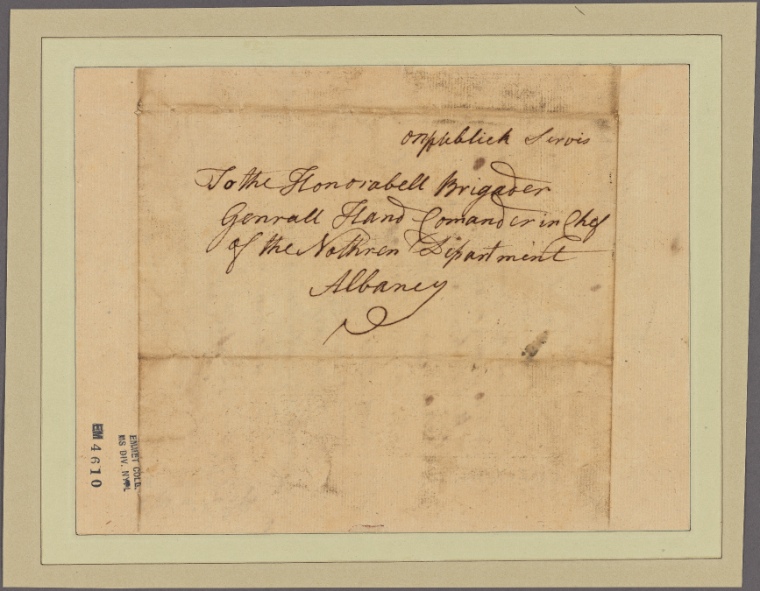 on publick Servis
To the Honorabell Brigader
Genrall Hand Comander in Chef
of the Nothren Department
Albaney
EMMET COLL.
MS DIV. NYPL
EM 4610